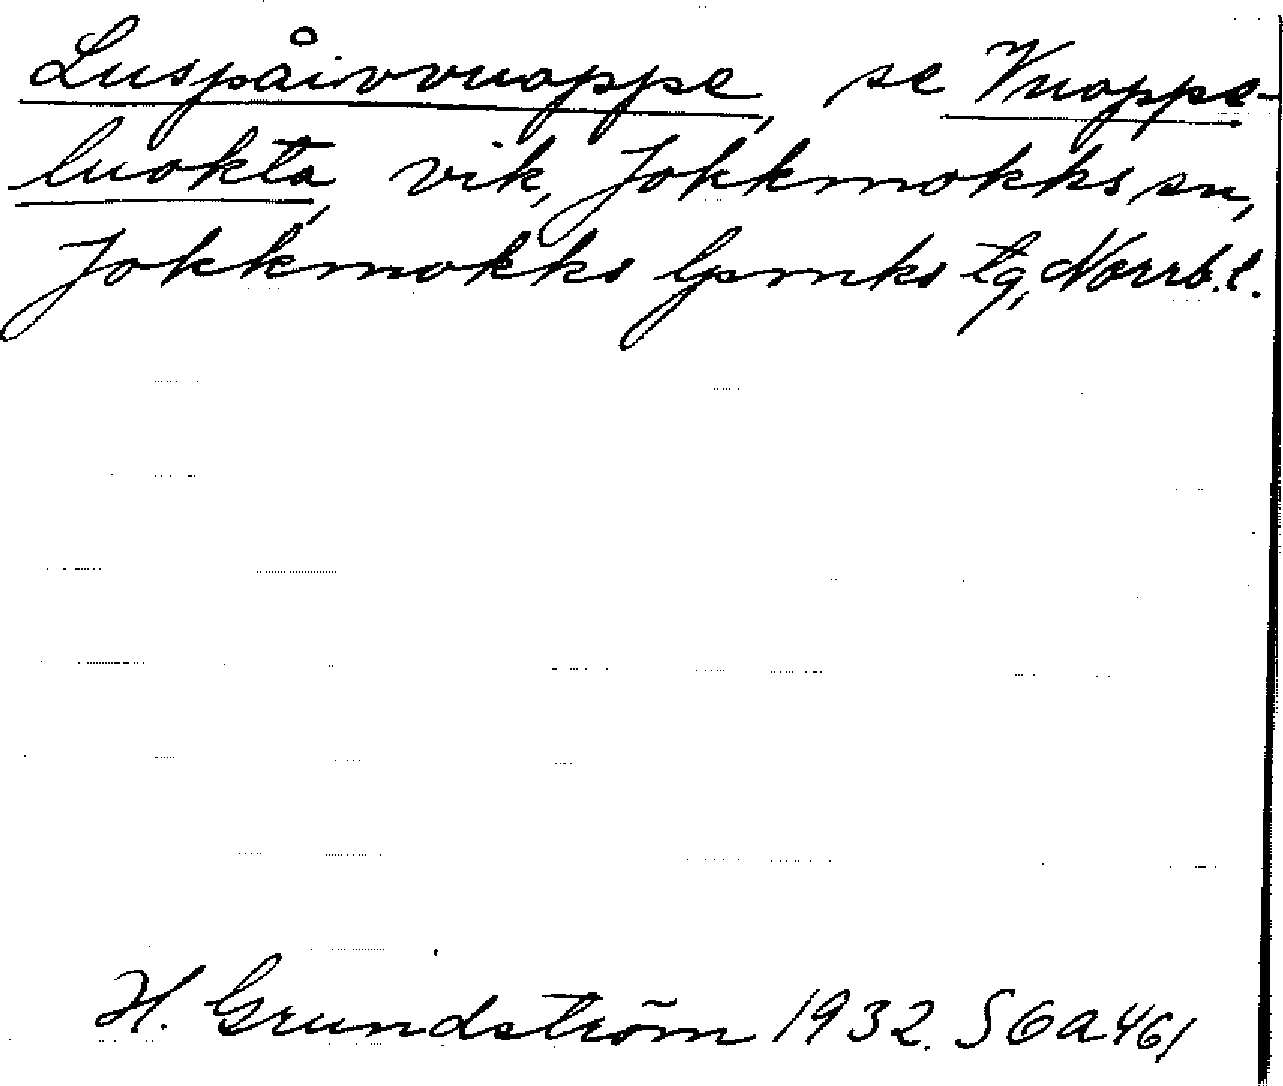 Luspåivvuoppe, se Vuoppe-
luokta, vik, Jokkmokks sn,
Jokkmokks lpmks tg, Norrb.l.
H. Grundström 1932. S6a461